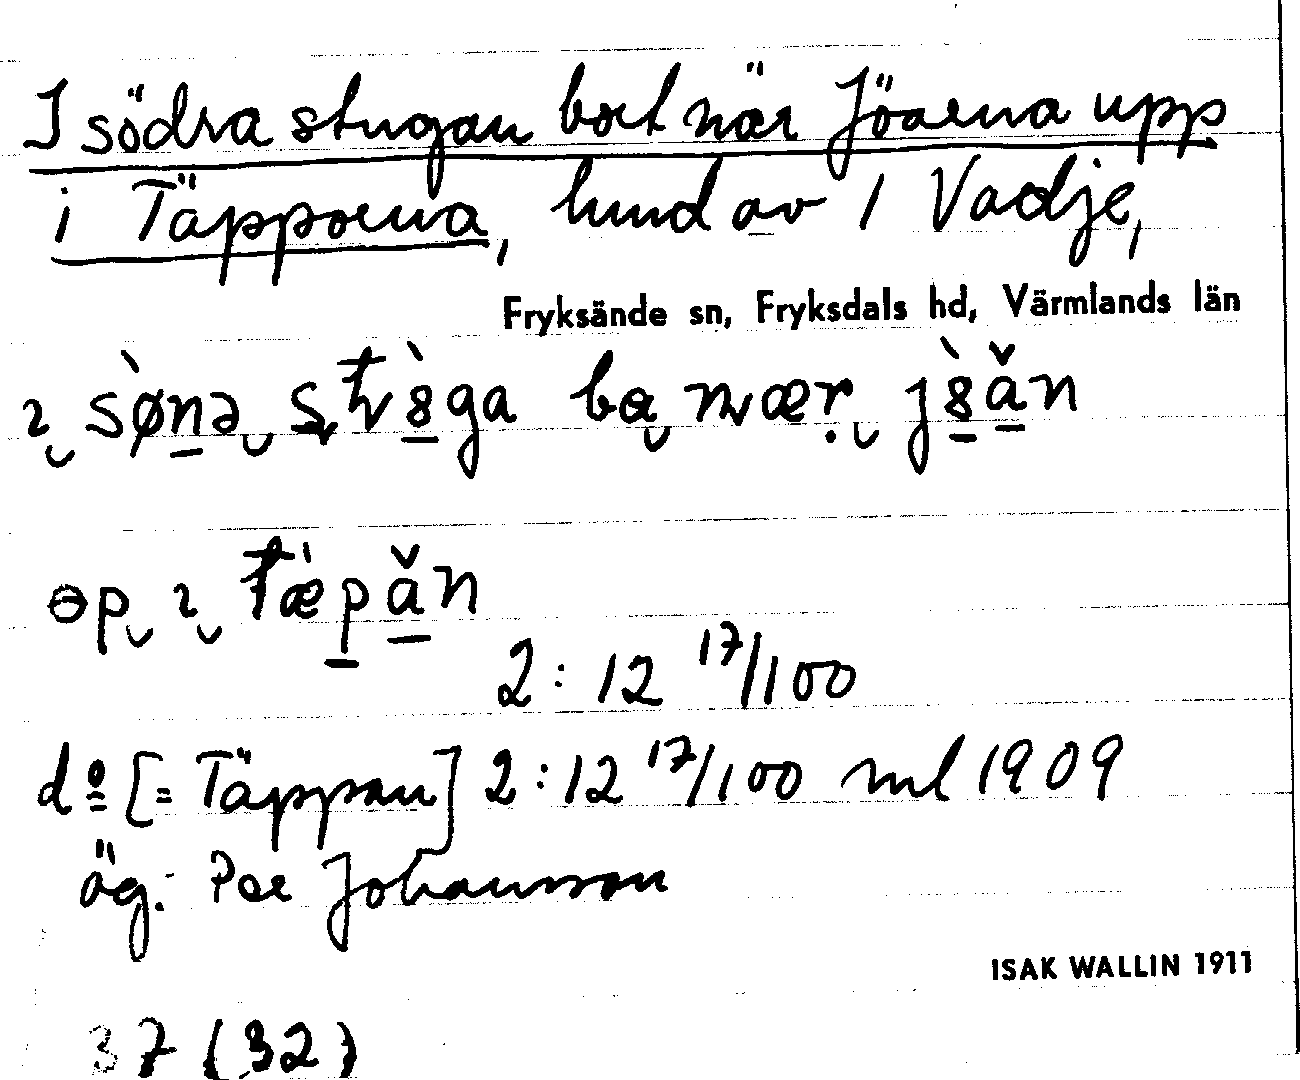 I södra stugan bort när Jöarna upp
i Täpporna, hmd av 1 Vadje,
Fryksände sn, Fryksdals hd, Värmlands län
ɩ sø̀nə
op ɩ tæ̀pǎn
2:12 17/100
dº [= Täppan] 2:12 17/100 ml 1909
äg: Per Johansson
ISAK WALLIN 1911
37 (32)